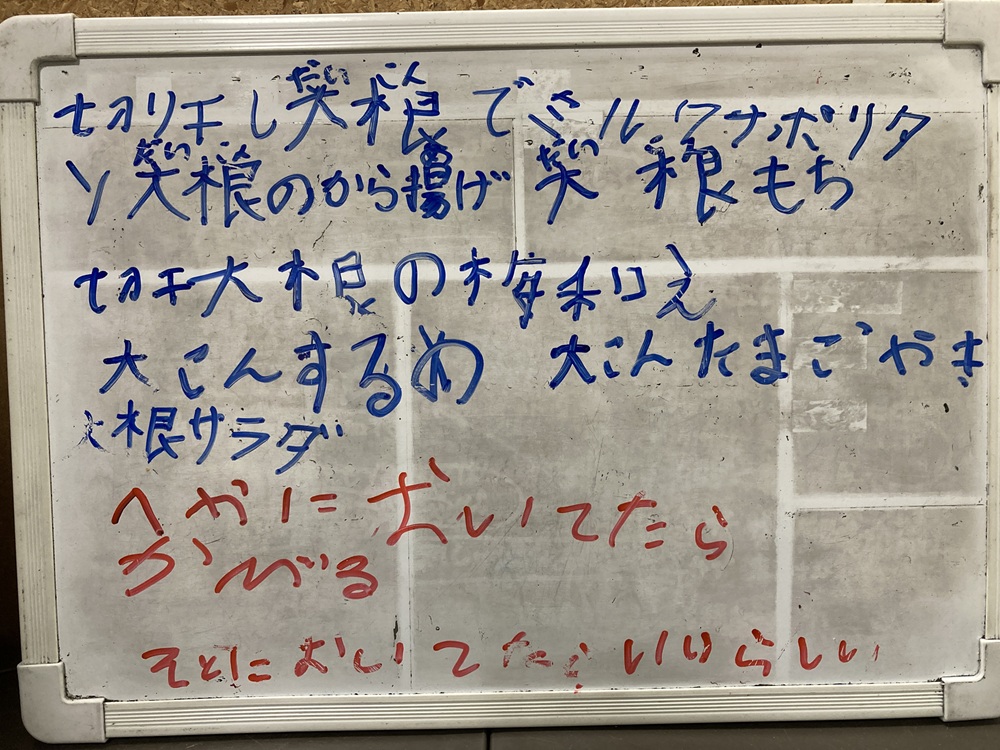 切り干し笑根でミルクナポリタ
ン笑根のから揚げ 笑根もち
切干大根の梅和え
大こんするめ 大こんたまごやき
大根サラダ
へやにおいてたら
かびる
そとにおいてたらいいらしい